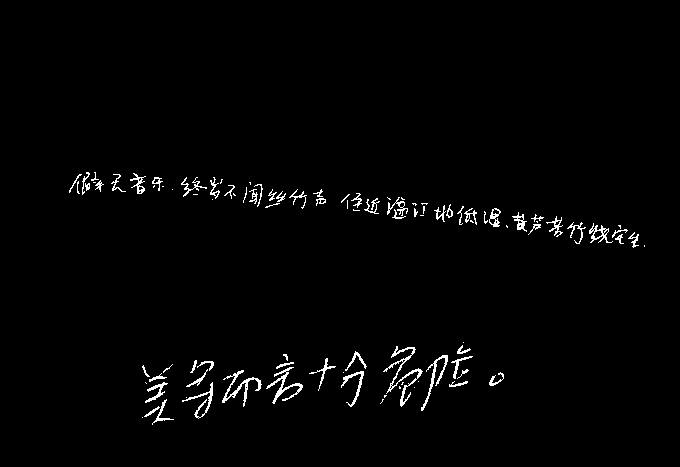 僻无音乐.终岁不闻丝竹声 住近湓江地低湿、黄芦苦竹绕宅生.
美军而言十分危险。